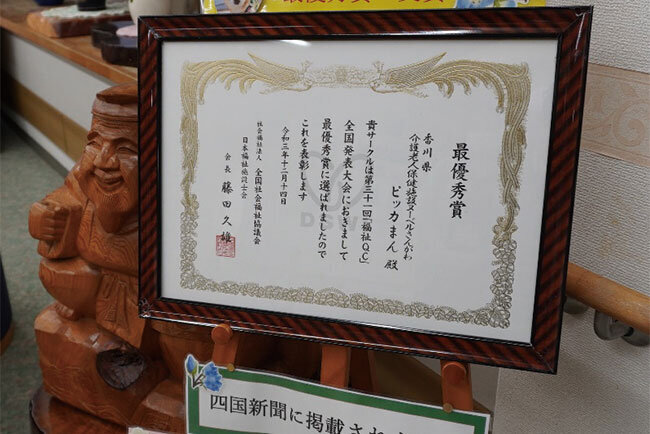 最優秀賞
香川県
介護老人保健施設ヌーベルさんがわ
ピッカまん 殿
貴サークルは第三十一回「福祉QC」
全国発表大会におきまして
最優秀賞に選ばれましたので
これを表彰します
令和三年十二月十四日
社会福祉法人 全国社会福祉協議会
日本福祉施設士会
会長 藤田久雄
DSW
四国新聞に掲載され